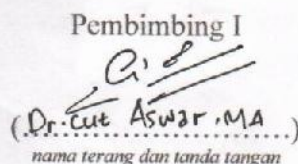 Pembimbing I
(Dr. Cut Aswar, MA)
nama terang dan tanda tangan